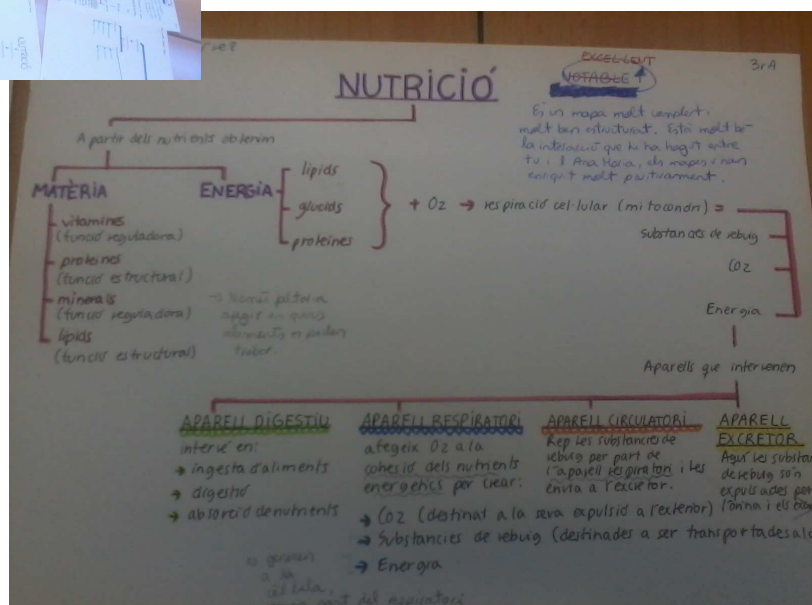 3r A
NUTRICIÓ
EXCEL·LENT
NOTABLE
És un mapa molt complert,
molt ben estructurat. Està molt bé
la interacció que hi ha hagut entre
tu i l'Ana Maria, els mapes s'han
enriquit molt positivament.
A partir dels nutrients obtenim
MATÈRIA
vitamines
(funció reguladora)
proteïnes
(funció estructural)
minerals
(funció reguladora)
lípids
(funció estructural)
ENERGIA
lípids
glucids
proteïnes
+ O2 → respiració cel·lular (mitocondri) =
substàncies de rebuig
CO2
Energia
→ Només
afegir en quins
aliments es poden
trobar.
Aparells que intervenen
APARELL DIGESTIU
intervé en:
→ ingesta d'aliments
→ digestió
→ absorció de nutrients
APARELL RESPIRATORI
afegeix O2 a la
cohesió dels nutrients
energètics per crear:
→ CO2 (destinat a la seva expulsió a l'exterior)
→ Substàncies de rebuig (destinades a ser transportades
→ Energia
APARELL CIRCULATORI
Rep les substàncies de
rebuig per part de
l'aparell respiratori i les
envia a l'excretor.
APARELL
EXCRETOR
Aquí les substan
de rebuig són
expulsades per
l'orina i els
es generen
a la
cèl·lula,
part del respiratori